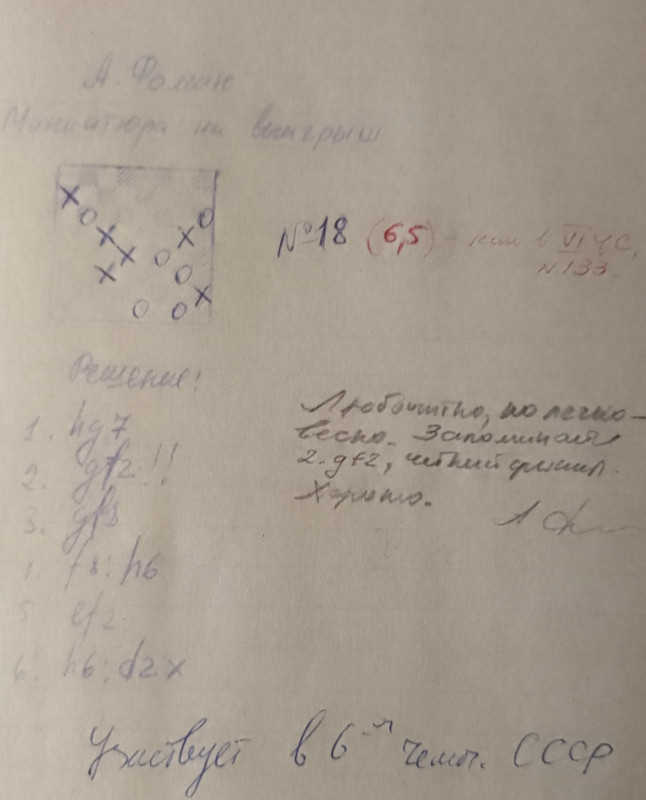 А. Фомин
Миниатюра на выигрыш
№18 (6,5) – как в VI ЧС,
N 133.
Решение:
1. hg7
2. gf2!!
3. gf8
4. f8:h6
5. ef2
6. h6:d2 x
Любопытно, но легко-
весно. Запоминается
2. gf2, чёткий финал.
Хорошо.
Участвует в 6-м чемп. СССР